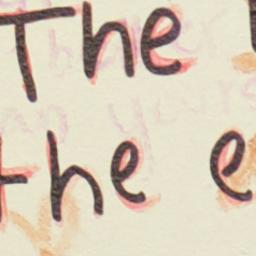 The
the e